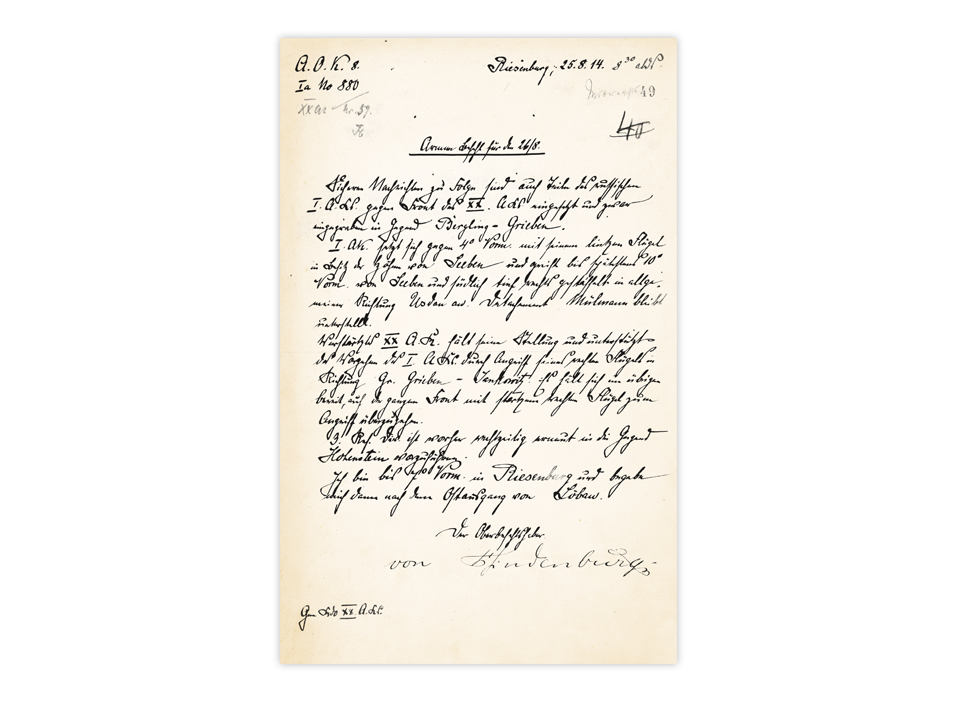 A. O. K. 8.
Ia No 880
Riesenburg, 25.8.14. 8 30 abds.
XX AK Nr. 59.
49
40
Armee Befehl für den 26/8.
Sicheren Nachrichten zu Folge sind auch Teile des russischen
I. A.Ks. gegen Front des XX. A.Ks eingesetzt und zwar
eingegraben in Gegend Bergling - Grieben.
I. AK. setzt sich gegen 4° Vorm. mit seinem linken Flügel
in Besitz der Höhen von Seeben und greift bis spätestens 10°
Vorm. von Seeben und südlich tief rechts gestaffelt in allge-
meiner Richtung Usdau an. Detachement Mülmann bleibt
unterstellt.
Verstärktes XX A.K. hält seine Stellung und unterstützt
das Vorgehen des I. A.Ks. durch Angriff seines rechten Flügels in
Richtung Gr. Grieben - Jankowitz. Es hält sich im übrigen
bereit, auf der ganzen Front mit starkem rechten Flügel zum
Angriff überzugehen.
3. Res. Div. ist vorher rechtzeitig erneut in die Gegend
Hohenstein vorzuführen.
Ich bin bis Vorm. in Riesenburg und begebe
mich dann nach dem Ostausgang von Löbau.
Der Oberbefehlshaber.
von Hindenburg.
Gen Kdo XX A.Ks.